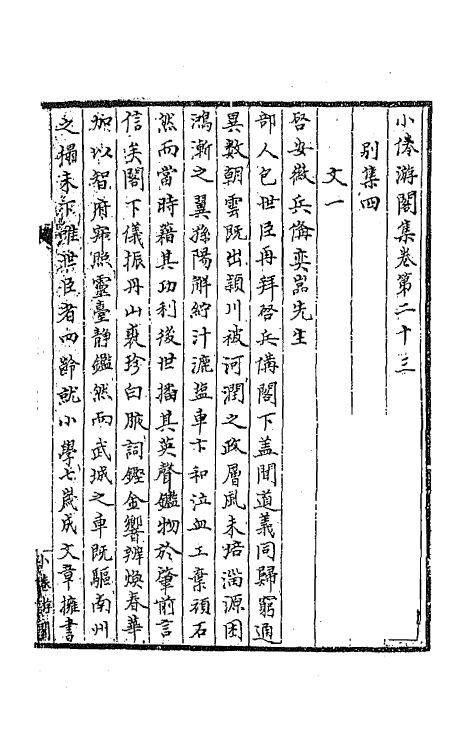 小倦游閣集卷第二十三
別集四
文一
啓安徽兵備奕嵩先生
部人包世臣再拜啓兵備閣下蓋聞道義同歸窮通
異數朝雲既出潁川被河潤之政層風未培淄源困
鴻漸之翼孫陽解紵汁灑鹽車卞和泣血工棄頑石
然而當時藉其功利後世播其英聲鑑物於肇前言
信矣閣下儀振丹山裘珍白腋詞鏗金響辨煥春華
加以智府寂照靈臺靜鑑然而武城之車既驅南州
之榻未下維世臣者四齡就小學七歲成文章擁書
小倦游閣